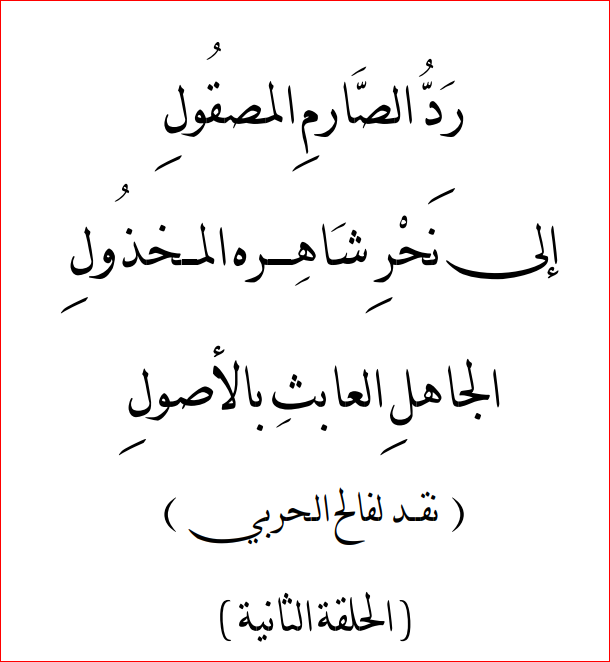 رَدُّ الصَّارمِ المصقُولِ
إلى نَحْرِ شَاهِـره المـخذُولِ
الجاهلِ العابثِ بالأصولِ
( نقـد لفالح الحربي )
( الحلقة الثانية )